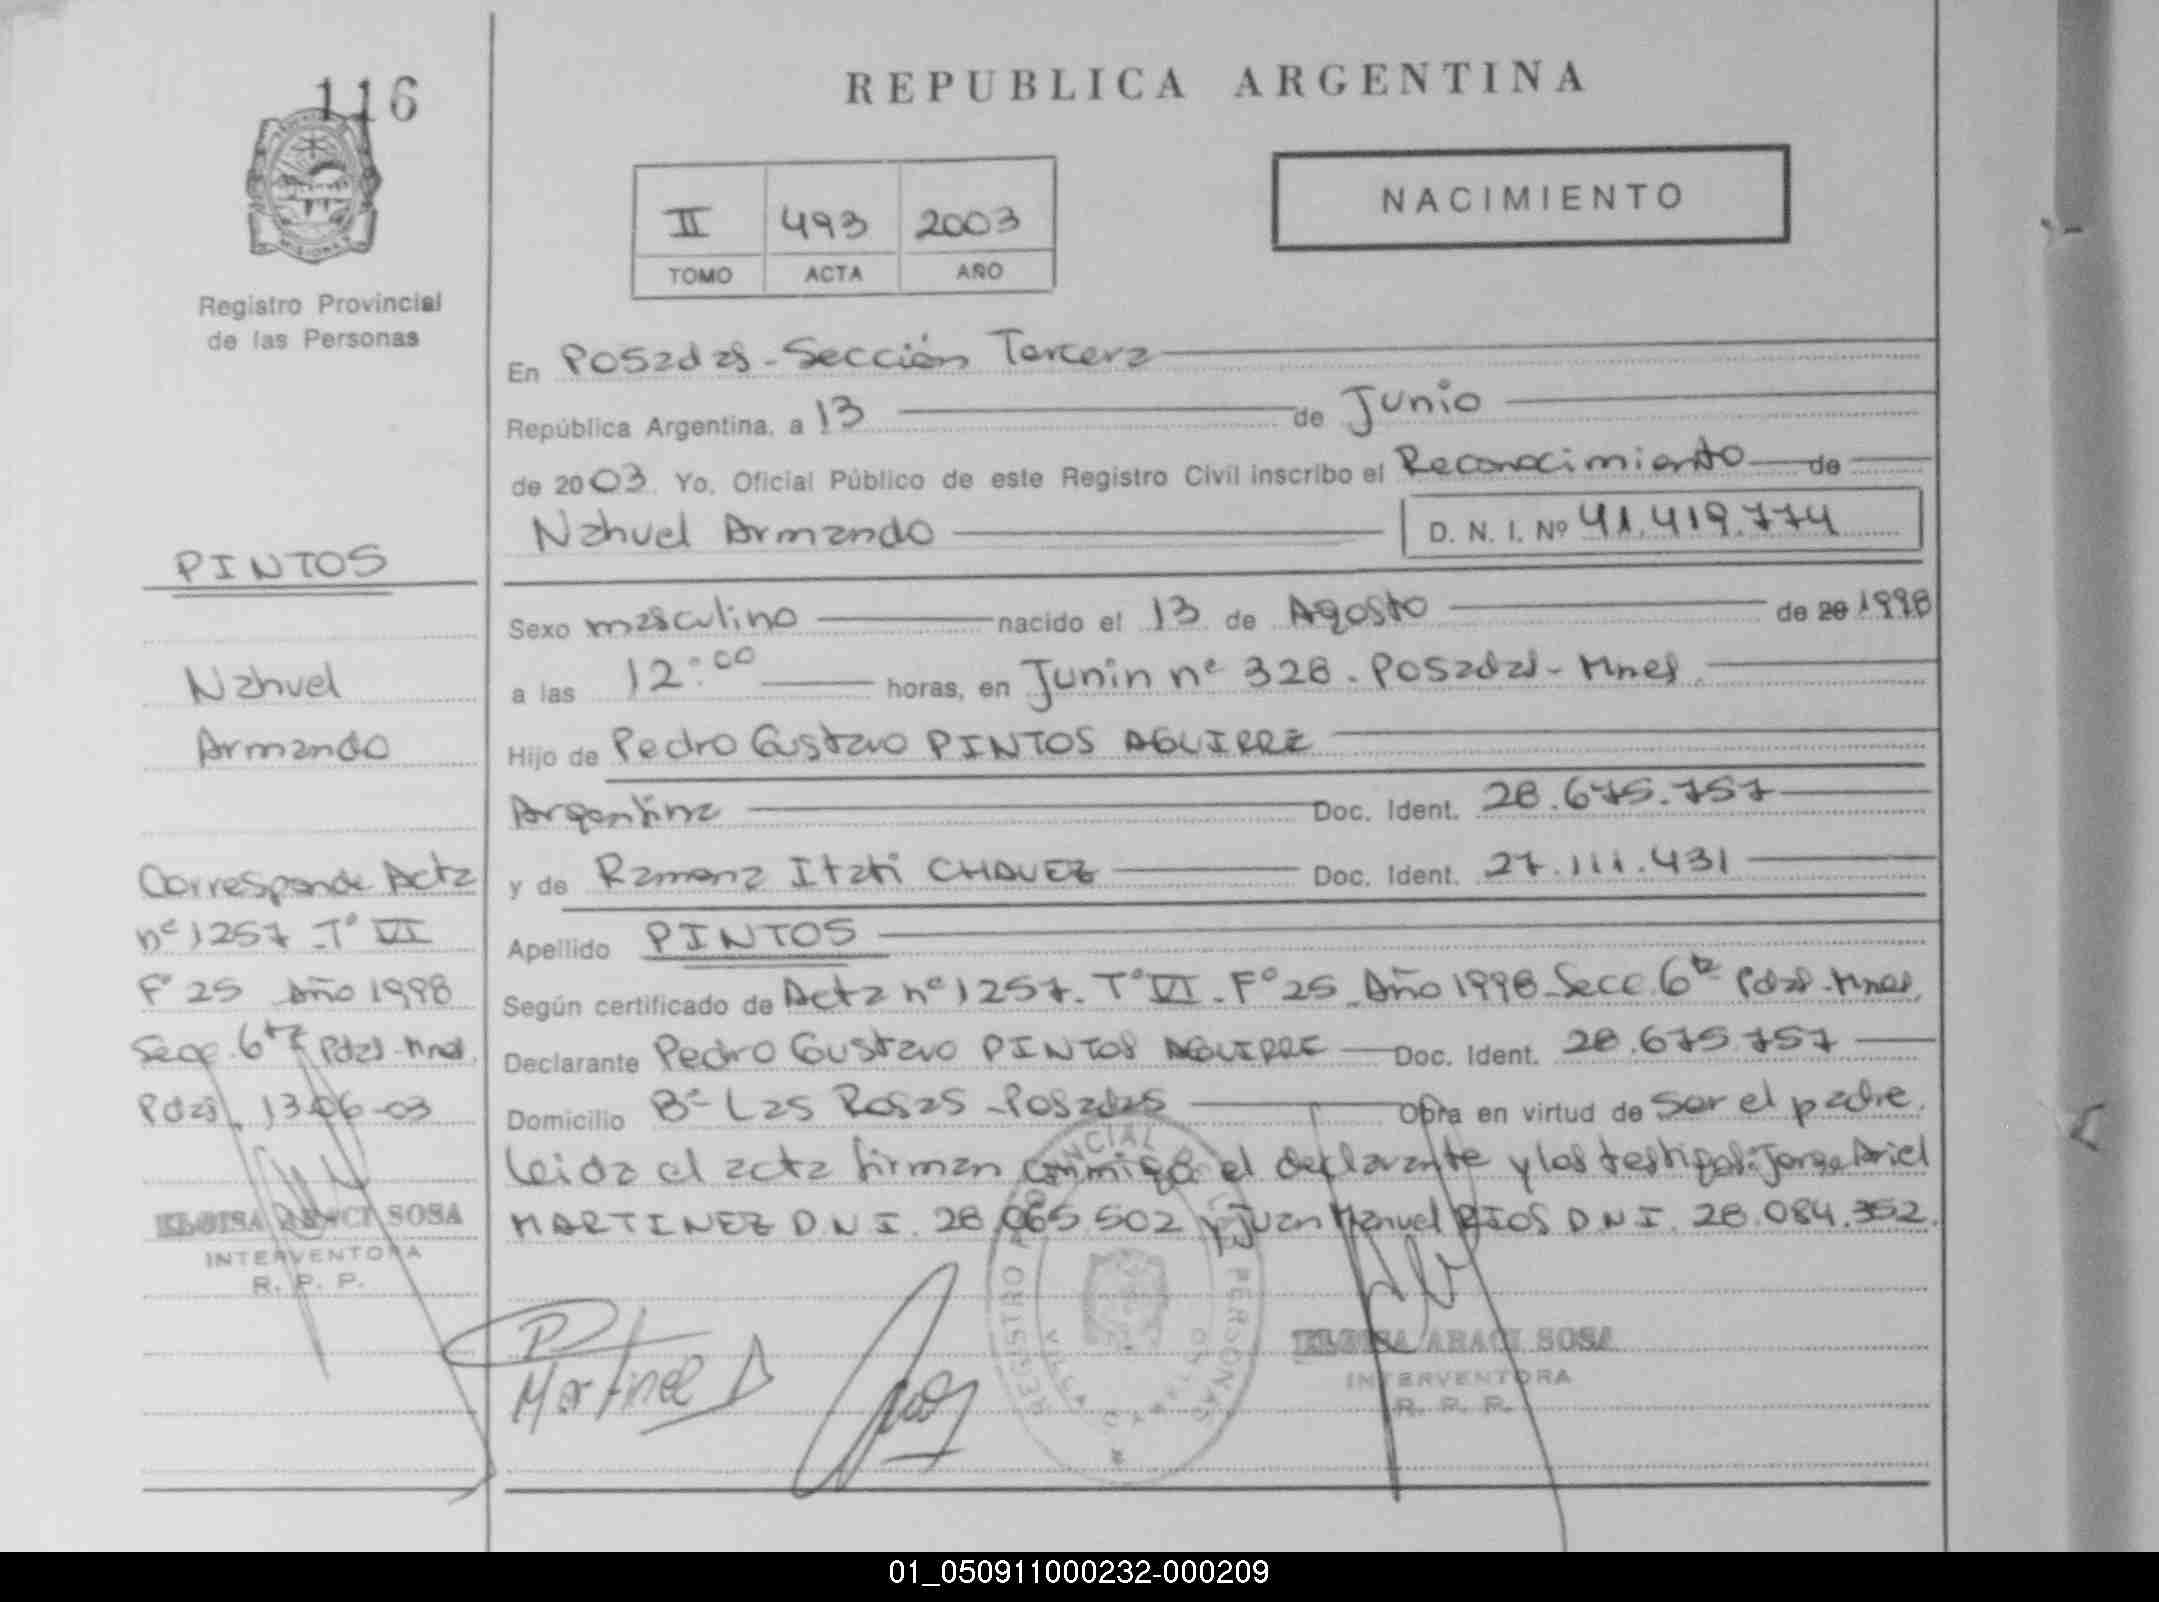 116
REPUBLICA ARGENTINA
NACIMIENTO
II 493 2003
TOMO ACTA AÑO
Registro Provincial
de las Personas
En Posadas - Sección Tercera
República Argentina, a 13 de Junio
de 2003. Yo, Oficial Público de este Registro Civil inscribo el Reconocimiento de
Nahuel Armando D. N. I. Nº 41.419.774
PINTOS
Nahuel
Armando
Corresponde Acta
nº 1257 - Tº VI
Fº 25 Año 1998
Secc. 6ta Pdas - Mnes.
Pdas, 13-06-03
ELOISA ARACI SOSA
INTERVENTORA
R. P. P.
Sexo masculino nacido el 13 de Agosto de 20 1998
a las 12:00 horas, en Junin nº 328 - Posadas - Mnes.
Hijo de Pedro Gustavo PINTOS AGUIRRE
Argentina Doc. Ident. 28.675.757
y de Ramona Itati CHAVEZ Doc. Ident. 27.111.431
Apellido PINTOS
Según certificado de Acta nº 1257 - Tº VI - Fº 25 - Año 1998 - Secc. 6ta Pdas - Mnes.
Declarante Pedro Gustavo PINTOS AGUIRRE Doc. Ident. 28.675.757
Domicilio Bº Las Rosas - Posadas Obra en virtud de ser el padre.
Leida el acta firman conmigo el declarante y los testigos: Jorge Ariel
MARTINEZ D.N.I. 28.065.502 y Juan Manuel RIOS D.N.I. 28.084.352.
Martinez
ELOISA ARACI SOSA
INTERVENTORA
R. P. P.
01_050911000232-000209